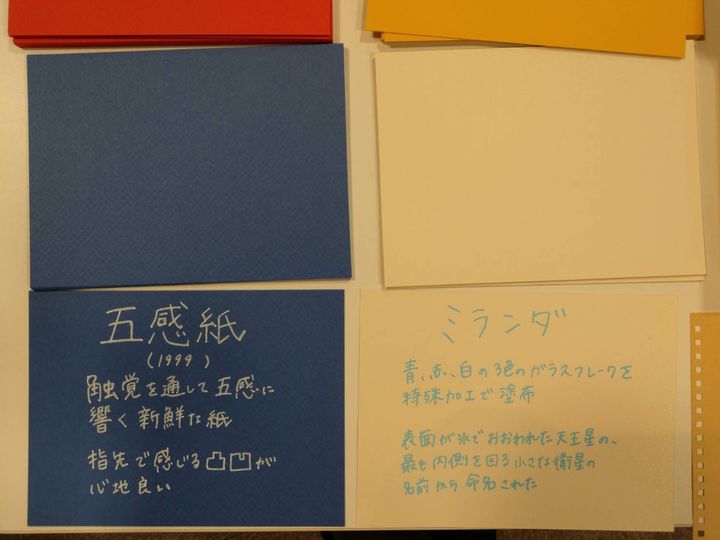 五感紙
(1999)
触覚を通して五感に
響く新鮮な紙
指先で感じる凸凹が
心地良い
ミランダ
青、赤、白の3色のガラスフレークを
特殊加工で塗布
表面が氷でおおわれた天王星の、
最も内側を回る小さな衛星の
名前から命名された